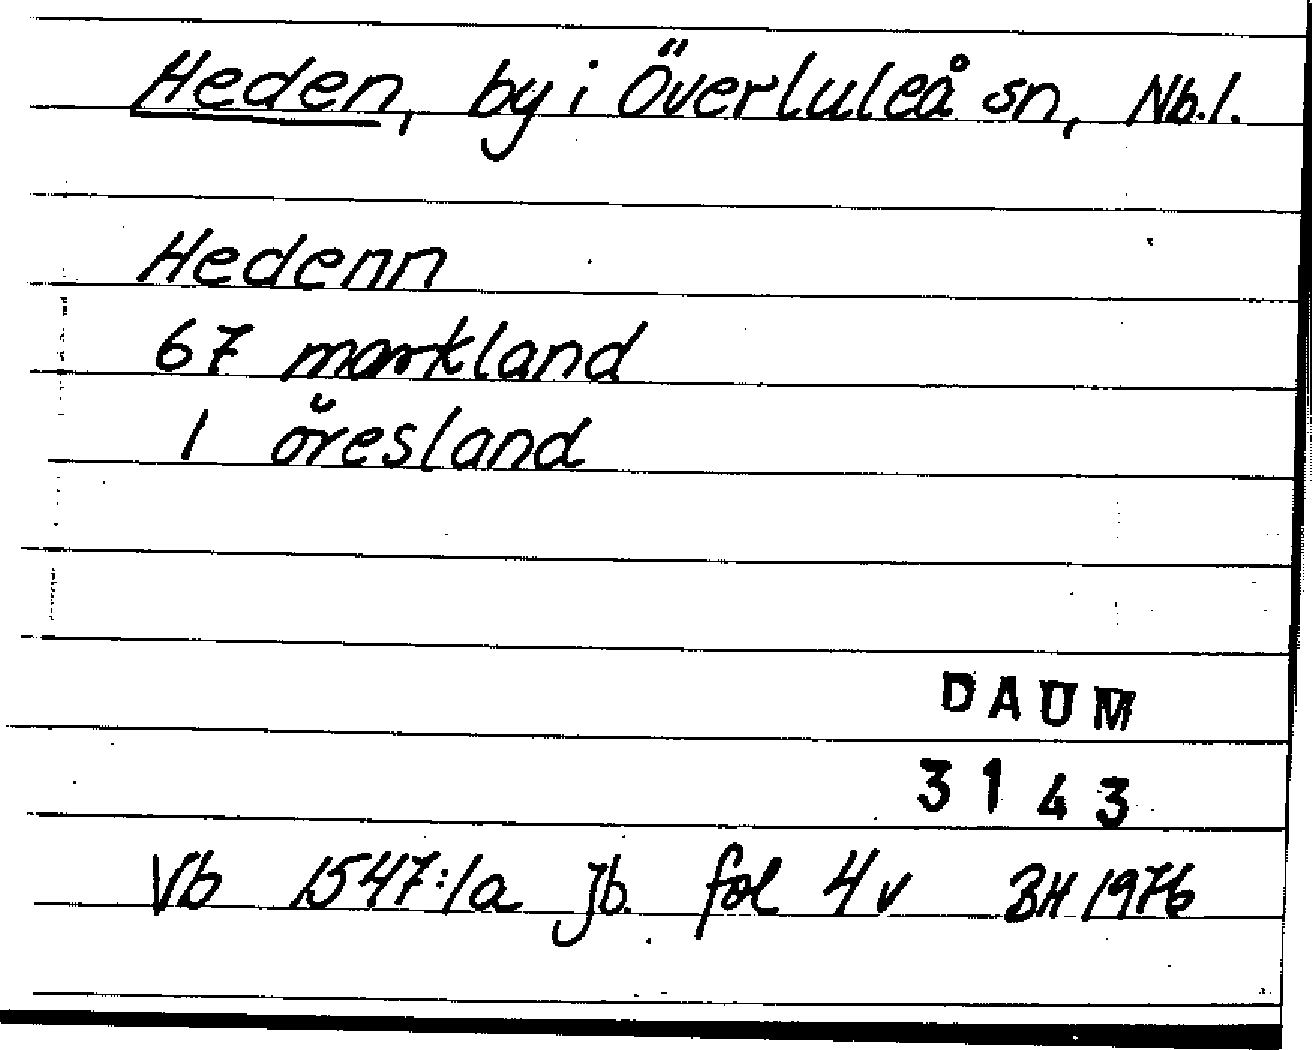 Heden, by i Överluleå sn, Nb.l.
Hedenn
67 markland
1 öresland
DAUM
3143
Vb 1547:1a jb. fol 4v BH 1976